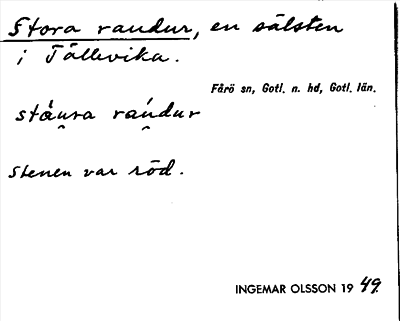 Stora raudur, en sälsten
i Tällevika.
Fårö sn, Gotl. n. hd, Gotl. län.
stáu̯ra ráu̯dur
Stenen var röd.
INGEMAR OLSSON 19 49.